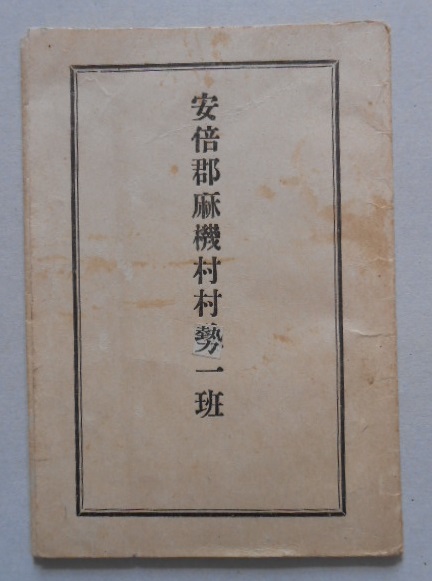 安倍郡麻機村村勢一班